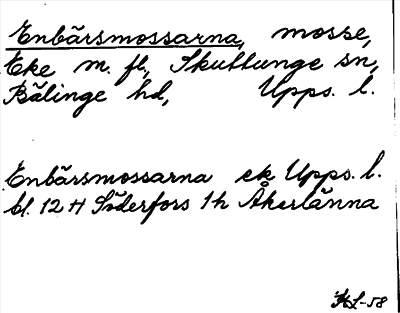 Enbärsmossarna, mosse,
Eke m. fl., Skuttunge sn,
Bälinge hd, Upps. l.
Enbärsmossarna ek Upps. l.
bl. 12 H Söderfors 1 h Åkerlänna